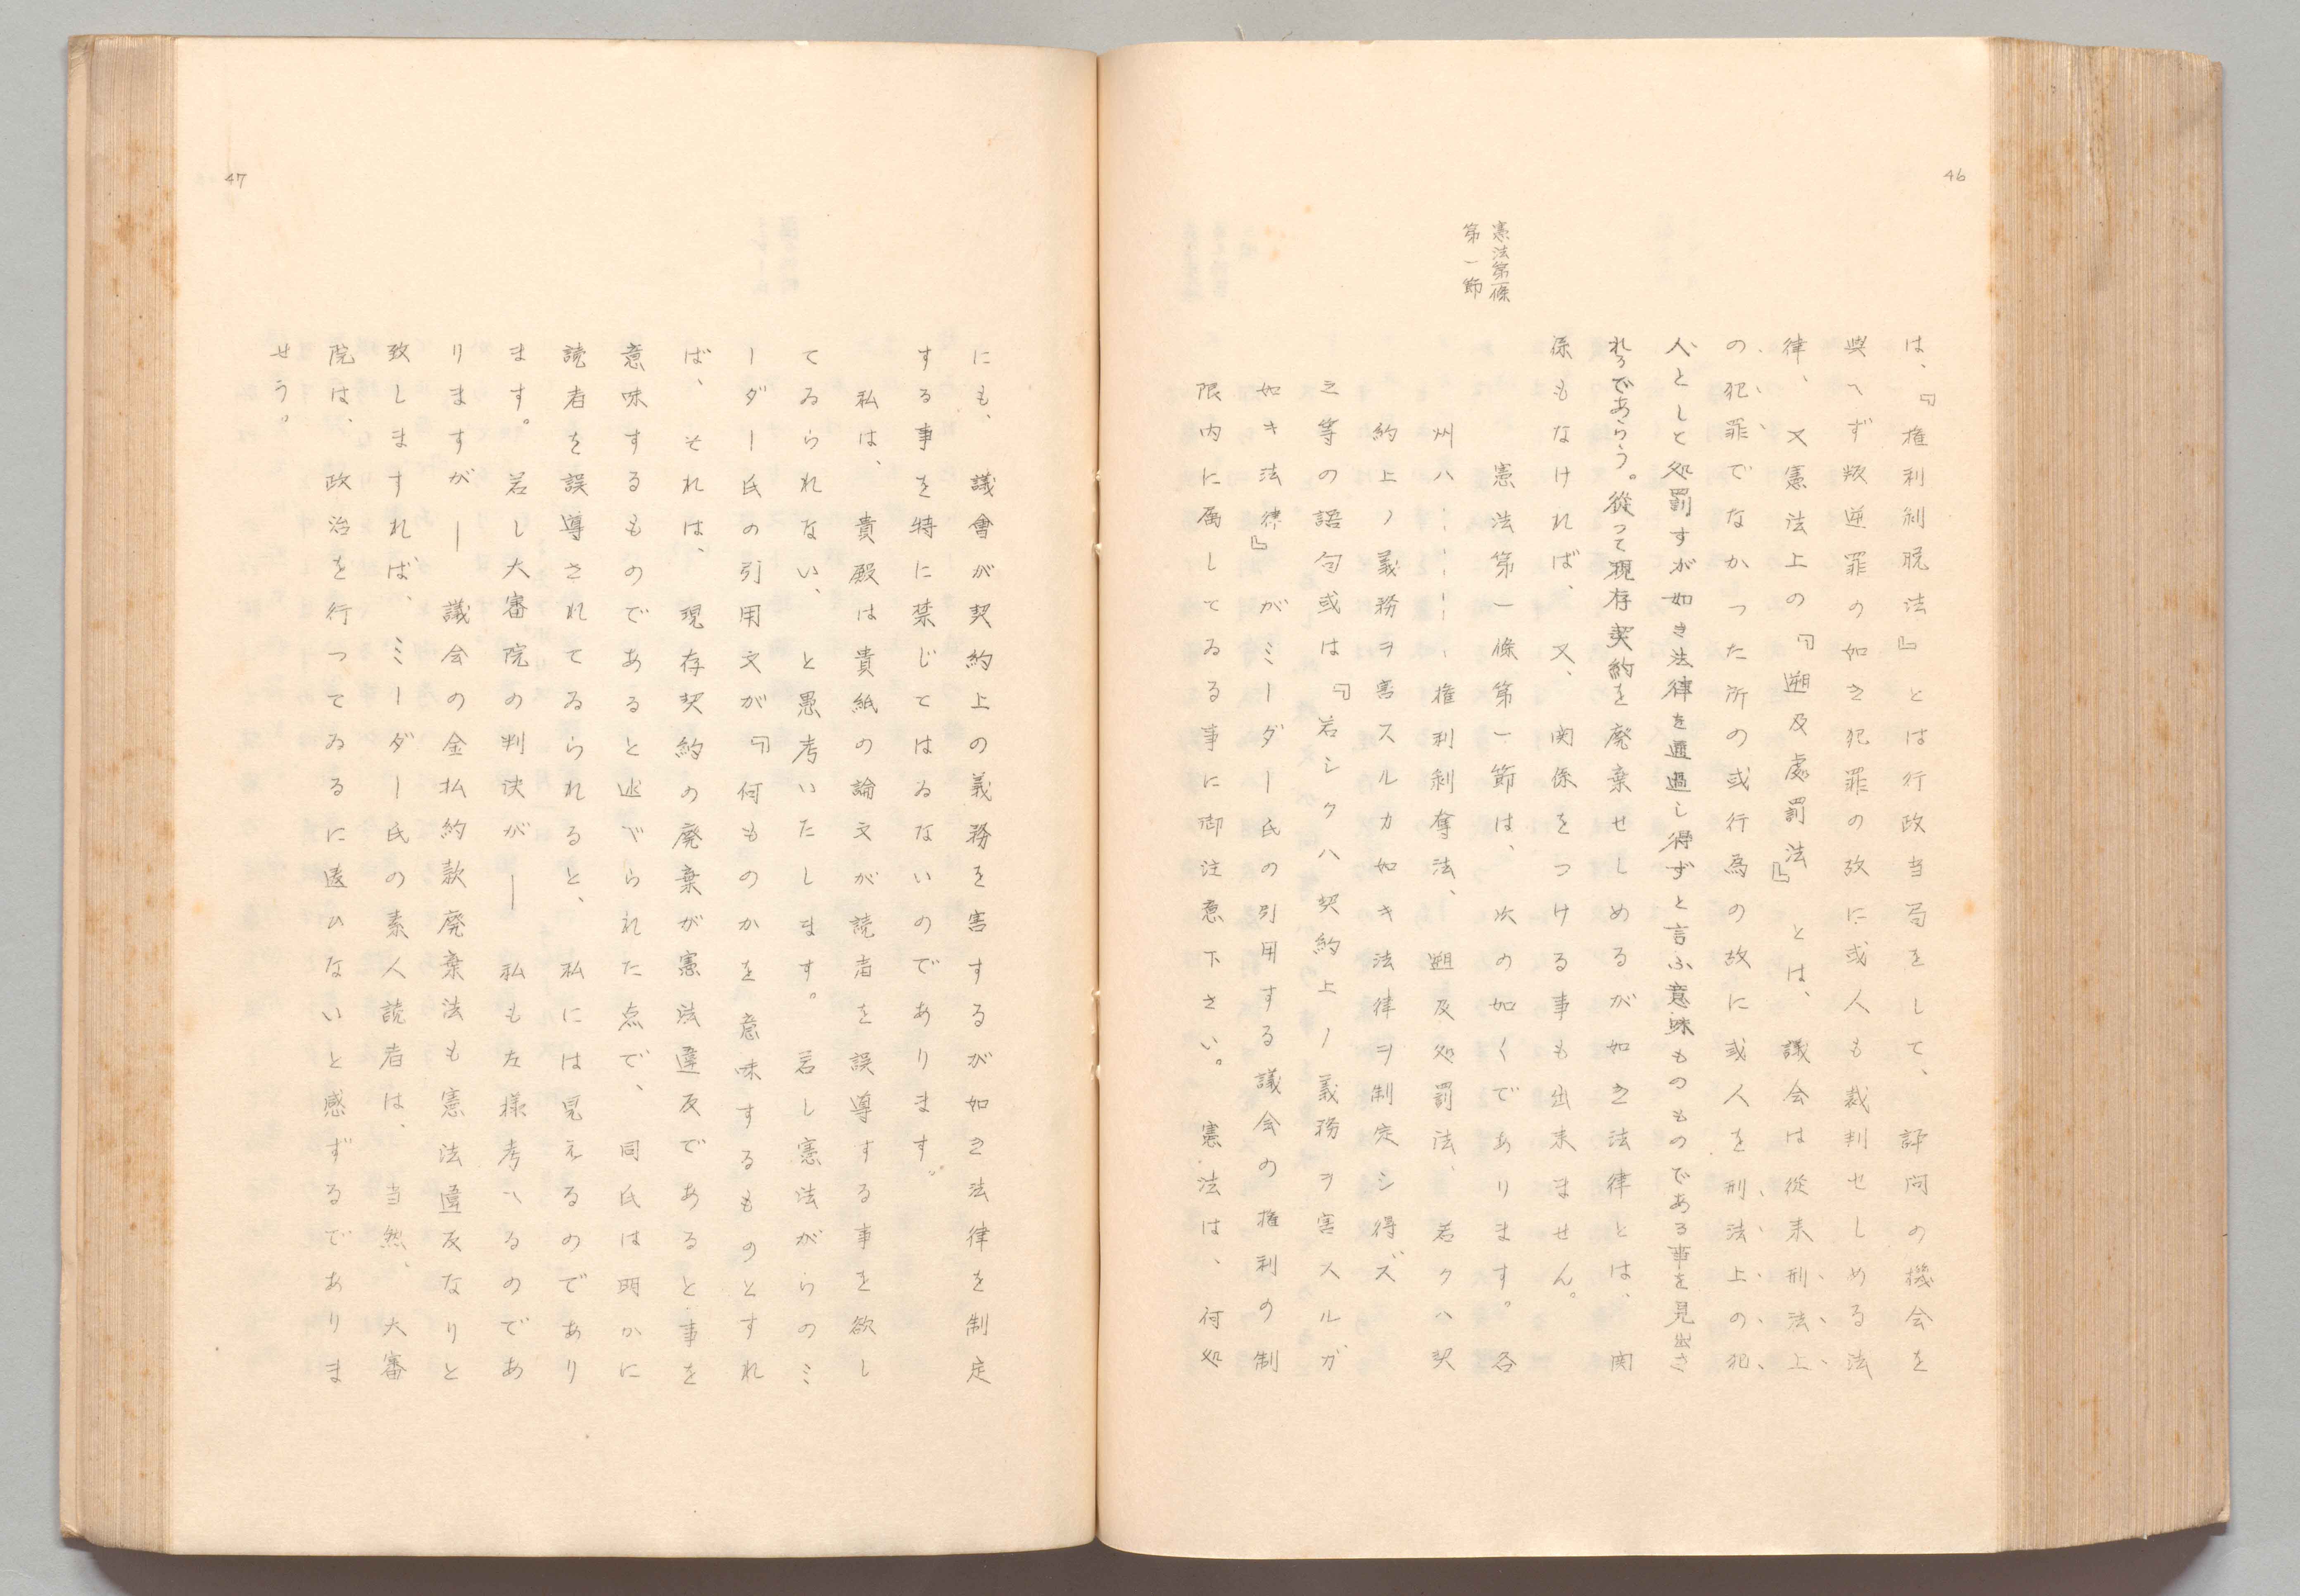 46
憲法第一條
第一節
は、『権利剥脱法』とは行政当局をして、評問の機会を
與へず叛逆罪の如き犯罪の故に或人も裁判せしめる法
律、又憲法上の『遡及處罰法』とは、議会は從来刑法上
の犯罪でなかった所の或行為の故に或人を刑法上の犯
人として処罰すが如き法律を通過し得ずと言ふ意味ものものである事を見出さ
れるであらう。從って現存契約を廃棄せしめるが如き法律とは、関
係もなければ、又、関係をつける事も出来ません。
憲法第一條第一節は、次の如くであります。各
州ハ‥‥‥‥権利剥奪法、遡及処罰法、若クハ契
約上ノ義務ヲ害スルカ如キ法律ヲ制定シ得ズ
之等の語句或は『若シクハ契約上ノ義務ヲ害スルガ
如キ法律』がミーダー氏の引用する議会の権利の制
限内に属してゐる事に御注意下さい。憲法は、何処
47
にも、議會が契約上の義務を害するが如き法律を制定
する事を特に禁じてはゐないのであります。
私は、貴殿は貴紙の論文が読者を誤導する事を欲し
てゐられない、と愚考いたします。若し憲法がらのミ
ーダー氏の引用文が『何ものかを意味するものとすれ
ば、それは、現存契約の廃棄が憲法違反であると事を
意味するものであると述べられた点で、同氏は明かに
読者を誤導されてゐられると、私には見えるのであり
ます。若し大審院の判決が――私も左様考へるのであ
りますが――議会の金払約款廃棄法も憲法違反なりと
致しますれば、ミーダー氏の素人読者は、当然、大審
院は、政治を行ってゐるに違ひないと感ずるでありま
せう。